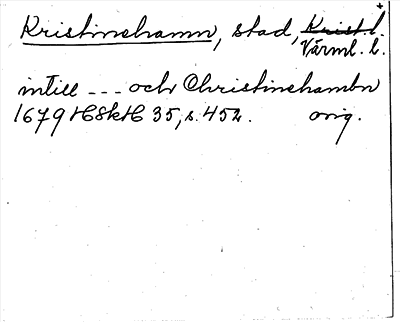 Kristinehamn, stad, Krist. l.
Värml. l.
intill --- och Christinehambn
1679 HSkH 35, s. 452. orig.